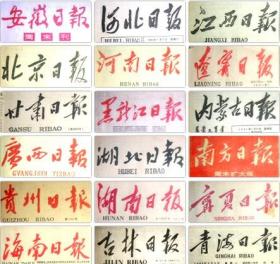 安徽日报 河北日报 江西日报
周末刊 HEBEI RIBAO JIANGXI RIBAO
北京日报 河南日报 辽宁日报
HENAN RIBAO LIAONING RIBAO
甘肃日报 黑龙江日报 内蒙古日报
GANSU RIBAO
广西日报 湖北日报 南方日报
GUANGXI RIBAO HUBEI RIBAO 周末扩大版
贵州日报 湖南日报 宁夏日报
GUIZHOU RIBAO HUNAN RIBAO NINGXIA RIBAO
海南日报 吉林日报 青海日报
JILIN RIBAO QINGHAI RIBAO